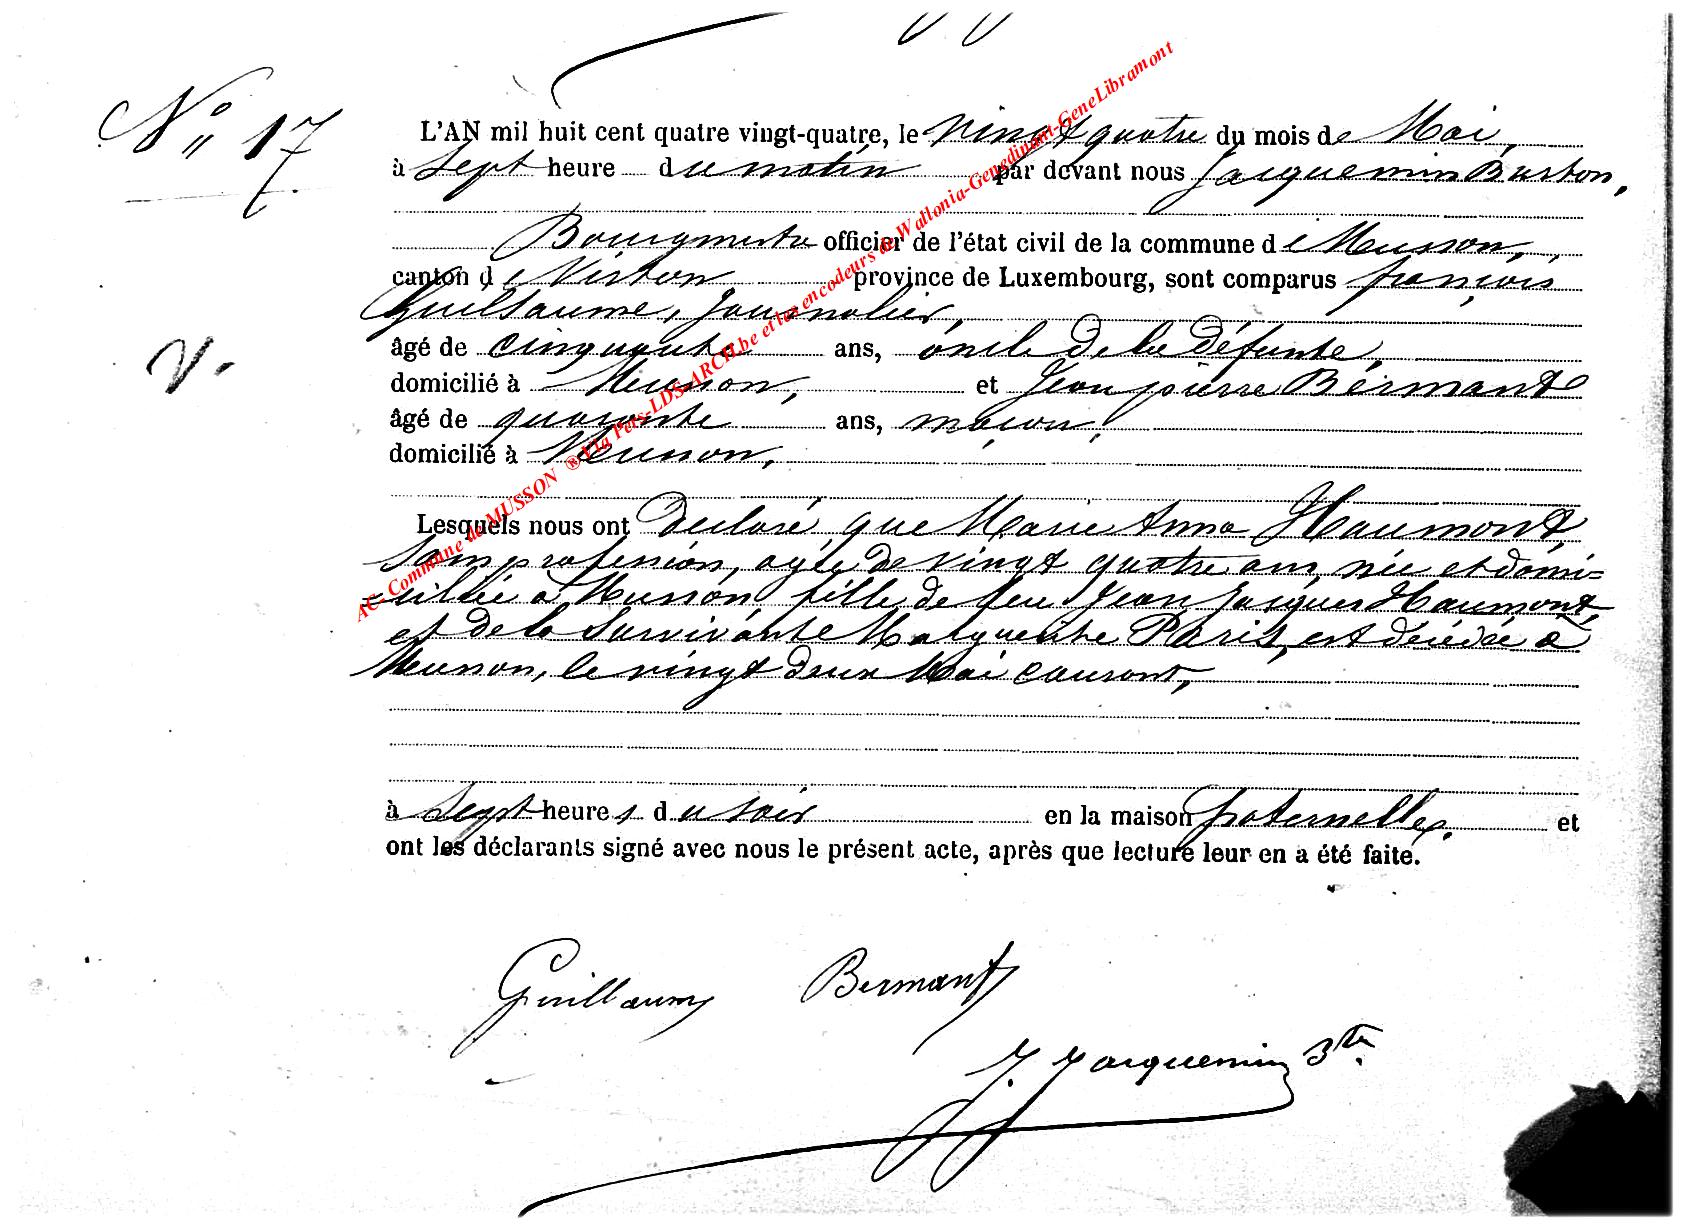 N° 17
L'AN mil huit cent quatre vingt-quatre, le vingt quatre du mois de Mai,
à sept heure du matin par devant nous Jacquemin Burton,
Bourgmestre officier de l'état civil de la commune de Musson,
canton de Virton province de Luxembourg, sont comparus françois
Guillaume, journalier,
âgé de cinquante ans, oncle de la défunte,
V.
domicilié à Musson, et Jean pierre Bérmant
âgé de quarante ans, maçon,
domicilié à Musson,
Lesquels nous ont declaré que Marie Anna Haumont,
sans profession, agée de vingt quatre ans, née et domi=
=ciliée à Musson fille de feu Jean Jacques Haumont,
et de la survivante Marguerite Paris, est décédée à
Musson, le vingt deux Mai courant,
à sept heures du soir en la maison paternelle. et
ont les déclarants signé avec nous le présent acte, après que lecture leur en a été faite.
Guillaume Bermant
J. Jacquemin
AC-Commune de MUSSON ® Via Pers-LDS-ARCH.be et les encodeurs de Wallonia-Genedinant-GeneLibramont